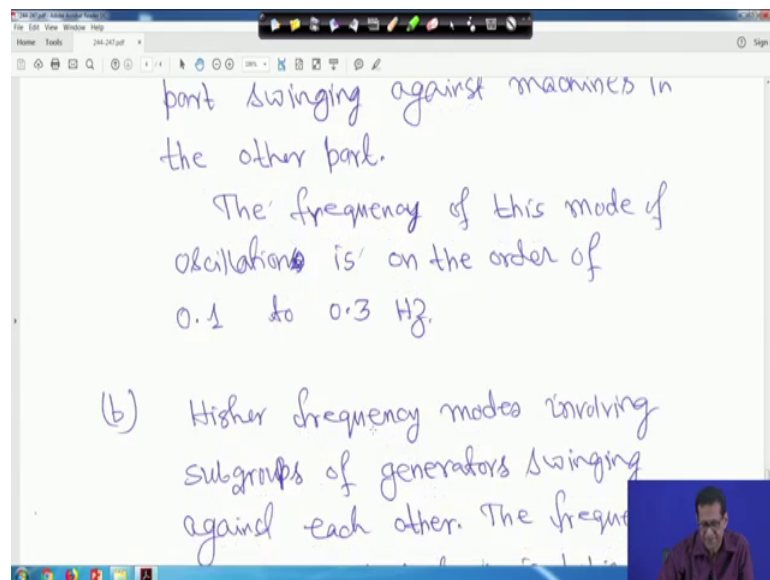 244-247.pdf - Adobe Acrobat Reader DC
File Edit View Window Help
Home Tools 244-247.pdf × Sign
part swinging against machines in
the other part.
The frequency of this mode of
oscillation is on the order of
0.1 to 0.3 Hz.
(b) Higher frequency modes involving
subgroups of generators swinging
against each other. The freque